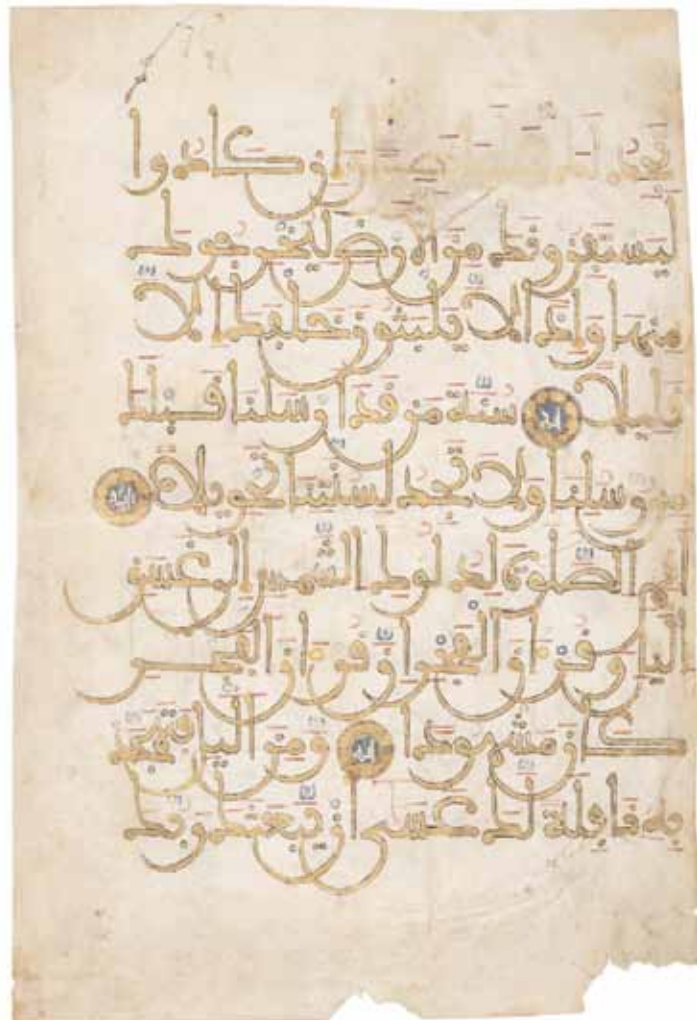 تجد لك وإن كادوا
ليستفزونك من الارض ليخرجوك
منها وإذا لا يلبثون خلفك إلا
قليلا اية سنة من قد ارسلنا قبلك
من رسلنا ولا تجد لسنتنا تحويلا اية
اقم الصلوة لدلوك الشمس إلى غسق
اليل وقرءان الفجر إن قرءان الفجر
كان مشهودا اية ومن اليل فتهجد
به نافلة لك عسى ان يبعثك ربك